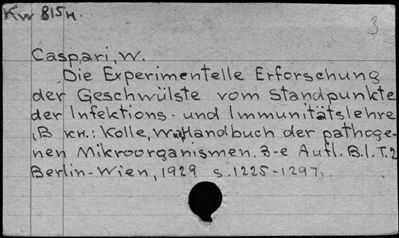 Kw 815н.
3
Caspari, W.
Die Experimentelle Erforschung
der Geschwülste vom Standpunkte
der Infektions- und Immunitätslehre
(В кн.: Kolle, W. Handbuch der pathoge-
nen Mikroorganismen. 3-e Aufl. B.I. T.2
Berlin-Wien, 1929 s. 1225-1297.